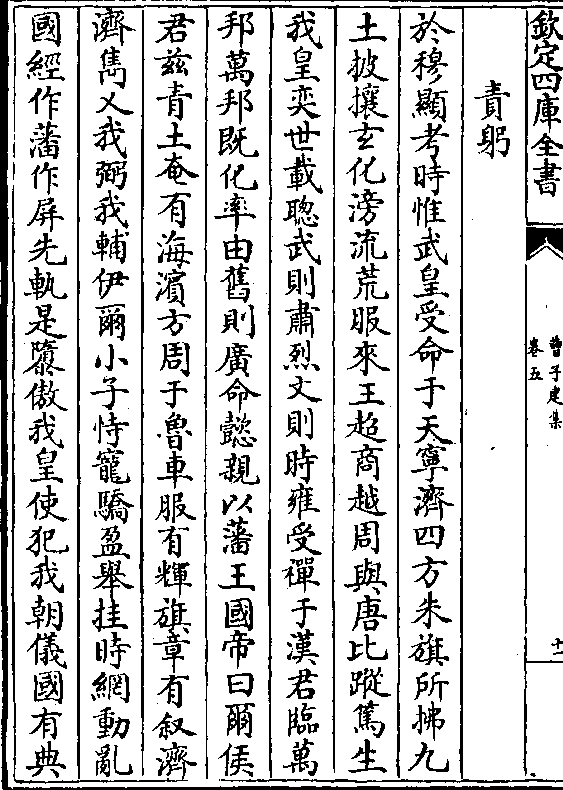 欽定四庫全書
曹子建集
卷五
十一
責躬
於穆顯考時惟武皇受命于天寧濟四方朱旗所拂九
土披攘玄化滂流荒服來王超商越周與唐比蹤篤生
我皇奕世載聰武則肅烈文則時雍受禪于漢君臨萬
邦萬邦既化率由舊則廣命懿親以藩王國帝曰爾侯
君兹青土奄有海濱方周于魯車服有輝旗章有叙濟
濟雋乂我弼我輔伊爾小子恃寵驕盈舉挂時網動亂
國經作藩作屏先軌是隳傲我皇使犯我朝儀國有典